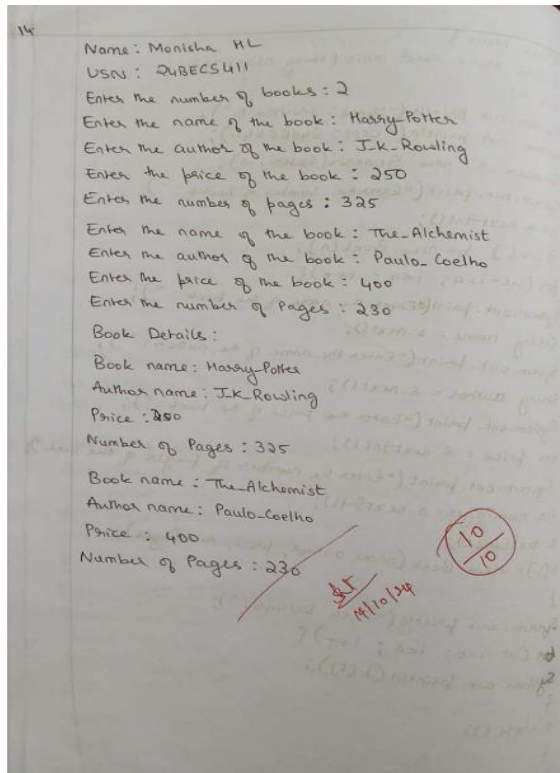 14
Name: Monisha HL
USN: 24BECS411
Enter the number of books: 2
Enter the name of the book: Harry-Potter
Enter the author of the book: J.K-Rowling
Enter the price of the book: 250
Enter the number of pages: 325
Enter the name of the book: The_Alchemist
Enter the author of the book: Paulo_Coelho
Enter the price of the book: 400
Enter the number of Pages: 230
Book Details:
Book name: Harry-Potter
Author name: J.K_Rowling
Price: 250
Number of Pages: 325
Book name: The_Alchemist
Author name: Paulo_Coelho
Price: 400
Number of Pages: 230
10
10
14/10/24